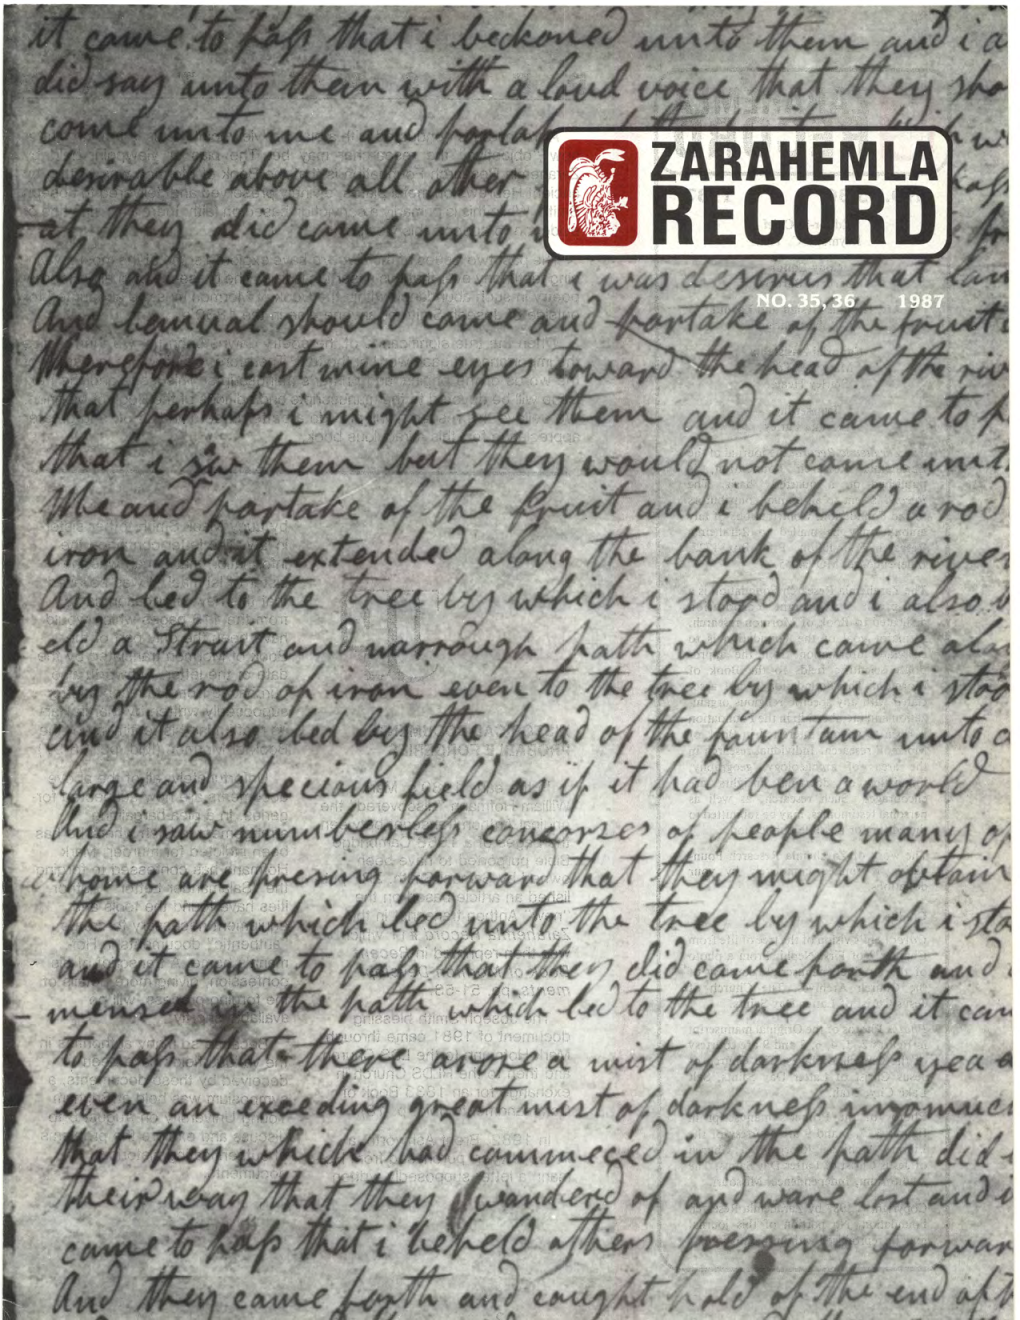 it came to pass that i beckoned unto them and i a
did say unto them with a loud voice that they sho
come unto me and
desirable above all other
at they did come unto
ZARAHEMLA
RECORD
NO. 35, 36 1987
Also and it came to pass that i was desirus that lam
And lemual should come and partake of the fruit
therefore i cast mine eyes toward the head of the riv
that perhaps i might see them and it came to p
that i saw them but they would not come unt
Me and partake of the fruit and i beheld a rod
iron and it extended along the bank of the river
And led to the tree by which i stood and i also b
eld a Strait and narrough path which came alo
by the rod of iron even to the tree by which i stoo
and it also led by the head of the fountain unto a
large and specious field as if it had ben a world
And i saw numberless concorses of people many of
whome are presing forward that they might obtain
the path which led unto the tree by which i sto
and it came to pass that they did come forth and
mensed in the path which led to the tree and it cam
to pass that there arose a mist of darkness yea a
even an exceding great mist of darkness insomuc
that they which had commeced in the path did
their way that they wanderd of and ware lost and
came to pass that i beheld others pressing forwar
And they came forth and caught hold of the end of